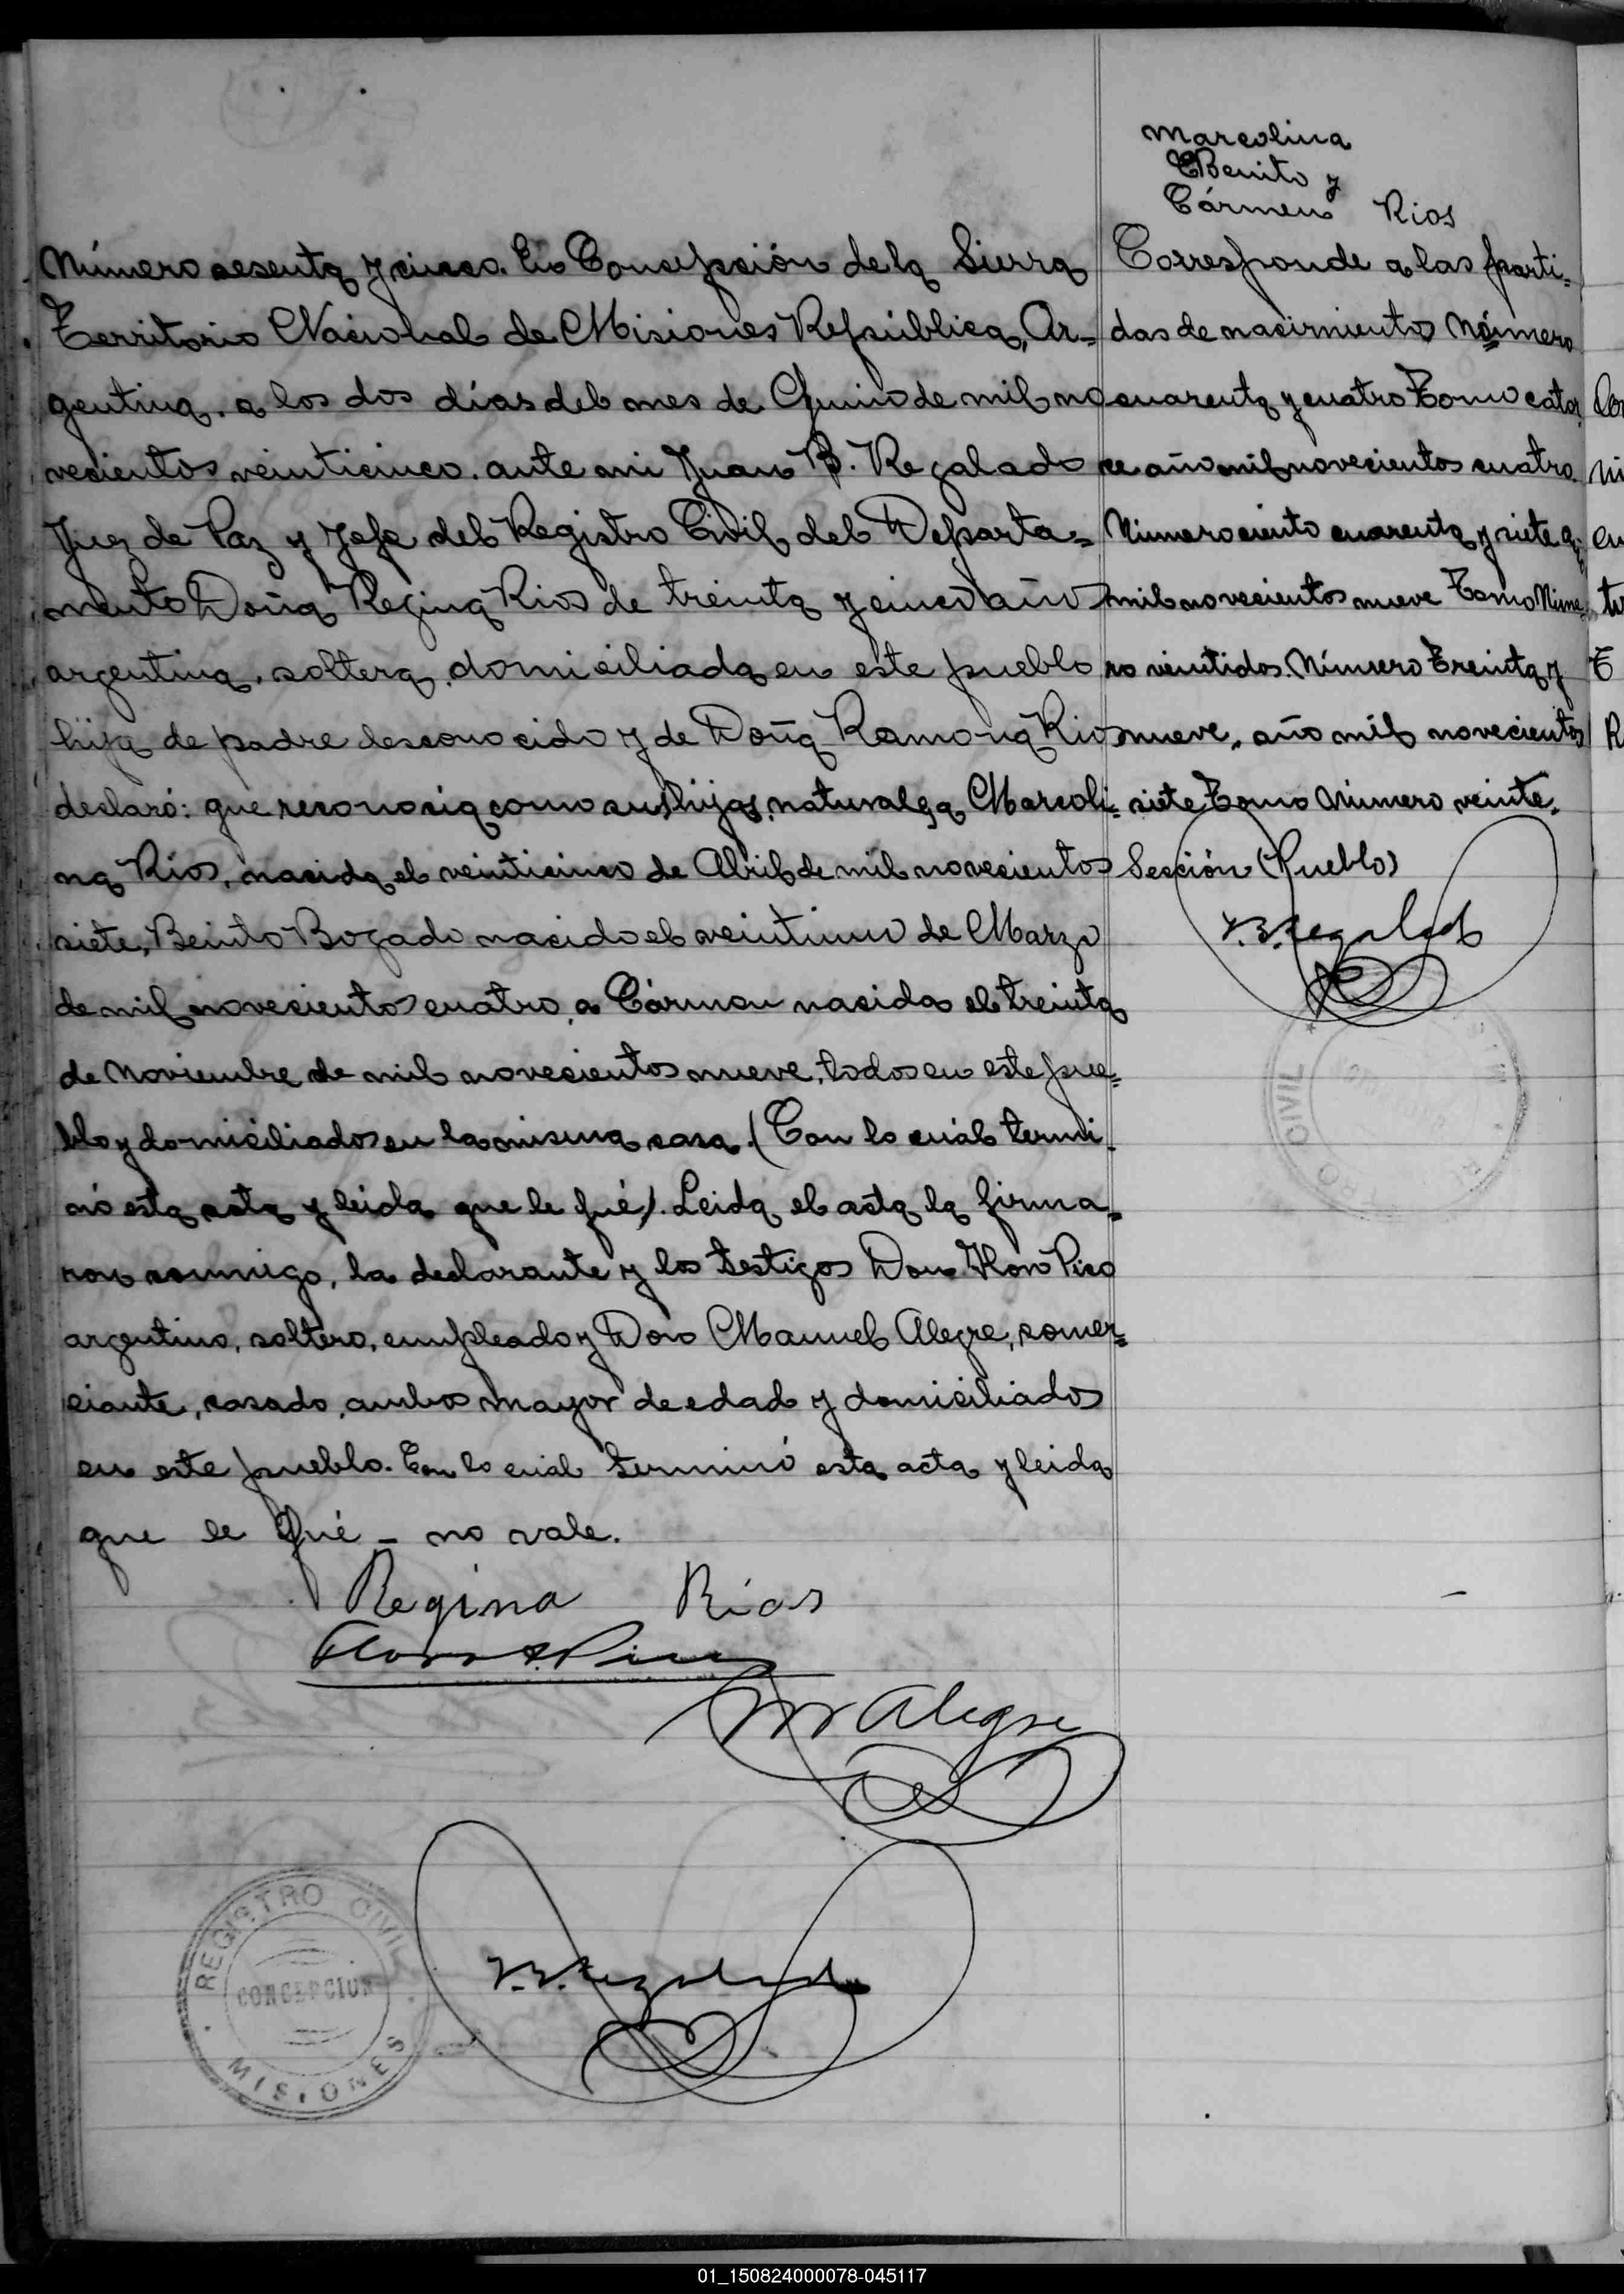 Marcolina
Benito y
Cármen Rios
Número sesenta y cinco. En Concepción de la Sierra
Territorio Nacional de Misiones República, Ar=
gentina, a los dos días del mes de Junio de mil no
vecientos veinticinco. ante mi Juan B. Regalado
Juez de Paz y Jefe del Registro Civil del Departa=
mento Doña Regina Rios de treinta y cinco años
argentina, soltera, domiciliada en este pueblo
hija de padre desconocido y de Doña Ramona Rios
declaró: que reconocia como sus hijos naturales a Marcoli=
na Rios, nacida el veinticinco de Abril de mil novecientos
siete, Benito Bogado nacido el veintiuno de Marzo
de mil novecientos cuatro, a Cármen nacida el treinta
de Noviembre de mil novecientos nueve, todos en este pue=
blo y domiciliados en la misma casa. (Con lo cuál termi=
nó esta acta y leida que le fué). Leida el acta la firma=
ron conmigo, la declarante y los testigos Don Flor Pico
argentino, soltero, empleado y Don Manuel Alegre, comer=
ciante, casado, ambos mayor de edad y domiciliados
en este pueblo. Con lo cuál terminó esta acta y leida
que le fué - no vale.
Regina Rios
M Alegre
J. B. Regalado
REGISTRO CIVIL
CONCEPCION
MISIONES
Corresponde a las parti=
das de nacimiento Número
cuarenta y cuatro Tomo cator
ce año mil novecientos cuatro.
Número ciento cuarenta y siete
mil novecientos nueve Tomo Núme
ro veintidos. Número Treinta y
nueve, año mil novecientos
siete Tomo Número veinte.
Sección (Pueblo)
J. B. Regalado
CIVIL
01_150824000078-045117